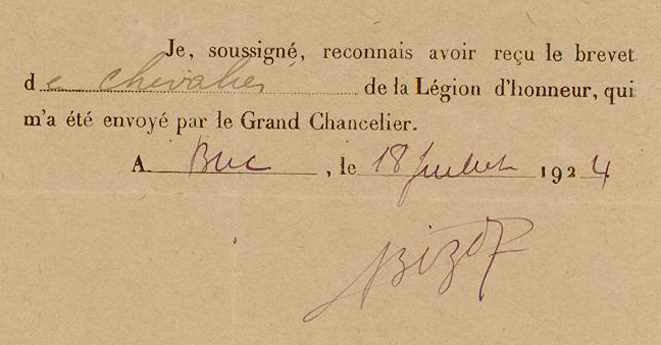 Je, soussigné, reconnais avoir reçu le brevet
de chevalier de la Légion d'honneur, qui
m'a été envoyé par le Grand Chancelier.
A Buc, le 18 Juillet 1924
Bizot